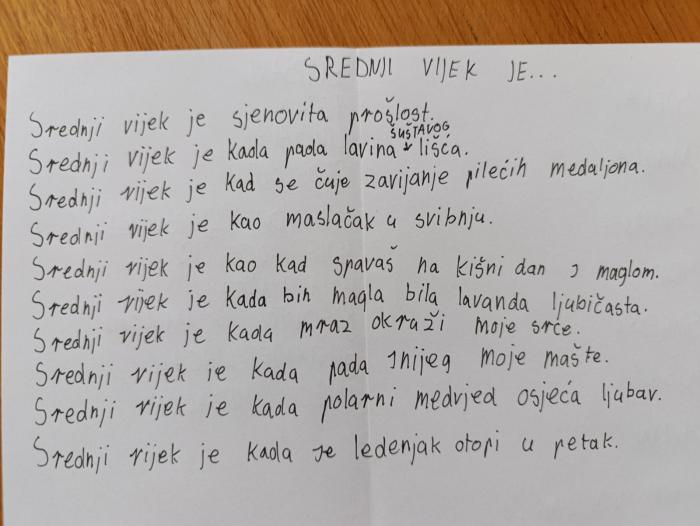 SREDNJI VIJEK JE...
Srednji vijek je sjenovita prošlost.
Srednji vijek je kada pada lavina ŠUŠTAVOG lišća.
Srednji vijek je kad se čuje zavijanje pilećih medaljona.
Srednji vijek je kao maslačak u svibnju.
Srednji vijek je kao kad spavaš na kišni dan s maglom.
Srednji vijek je kada bih magla bila lavanda ljubičasta.
Srednji vijek je kada mraz okraži moje srce.
Srednji vijek je kada pada snijeg moje mašte.
Srednji vijek je kada polarni medvjed osjeća ljubav.
Srednji vijek je kada se ledenjak otopi u petak.